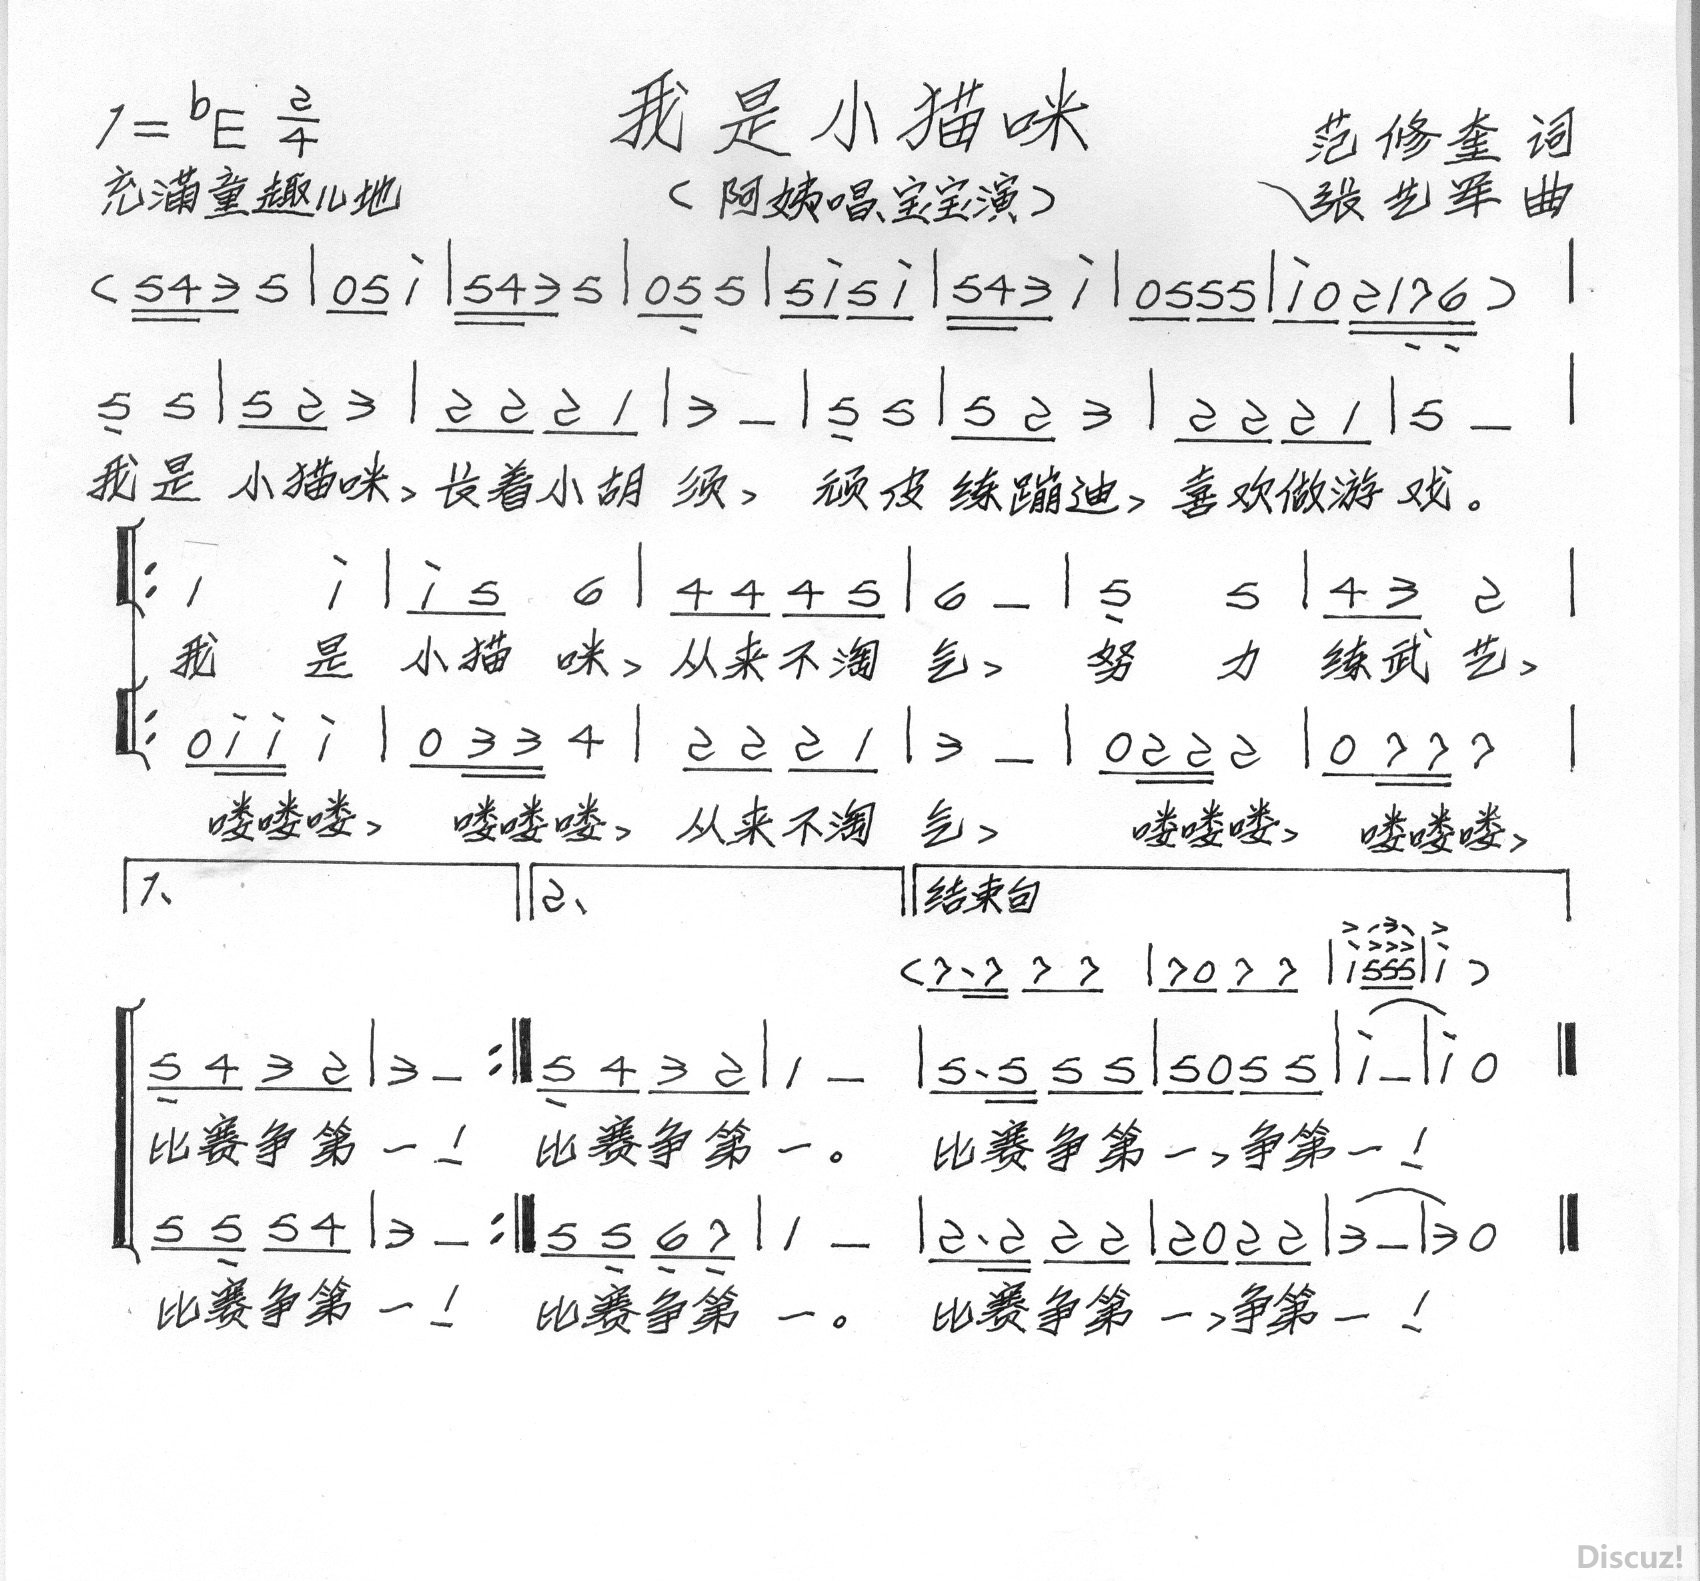 我是小猫咪
1=bE 2/4
范修奎 词
充满童趣儿地
(阿姨唱宝宝演)
张艺军 曲
(5435|05i|5435|055|5i5i|543i|0555|i02176)|
5 5|5 2 3|2 2 2 1|3 –|5 5|5 2 3|2 2 2 1|5 –|
我是 小猫咪、长着小胡 须、 顽皮 练蹦迪、喜欢做游 戏。
‖: 1 i|i 5 6|4 4 4 5|6 –|5 5|4 3 2|
我 是 小猫 咪、从来不淘 气、 努 力 练武 艺、
‖: 0 i i i|0 3 3 4|2 2 2 1|3 –|0 2 2 2|0 7 7 7|
喽喽喽、 喽喽喽、 从来不淘 气、 喽喽喽、 喽喽喽、
1、 2、 结束句
(7·7 7 7|7 0 7 7|i555|i)
5 4 3 2|3 – :‖5 4 3 2|1 –|5·5 5 5|5 0 5 5|i –|i 0‖
比赛争第一! 比赛争第一。 比赛争第一、争第一!
5 5 5 4|3 – :‖5 5 6 7|1 –|2·2 2 2|2 0 2 2|3 –|3 0‖
比赛争第一! 比赛争第一。 比赛争第一、争第一!
Discuz!